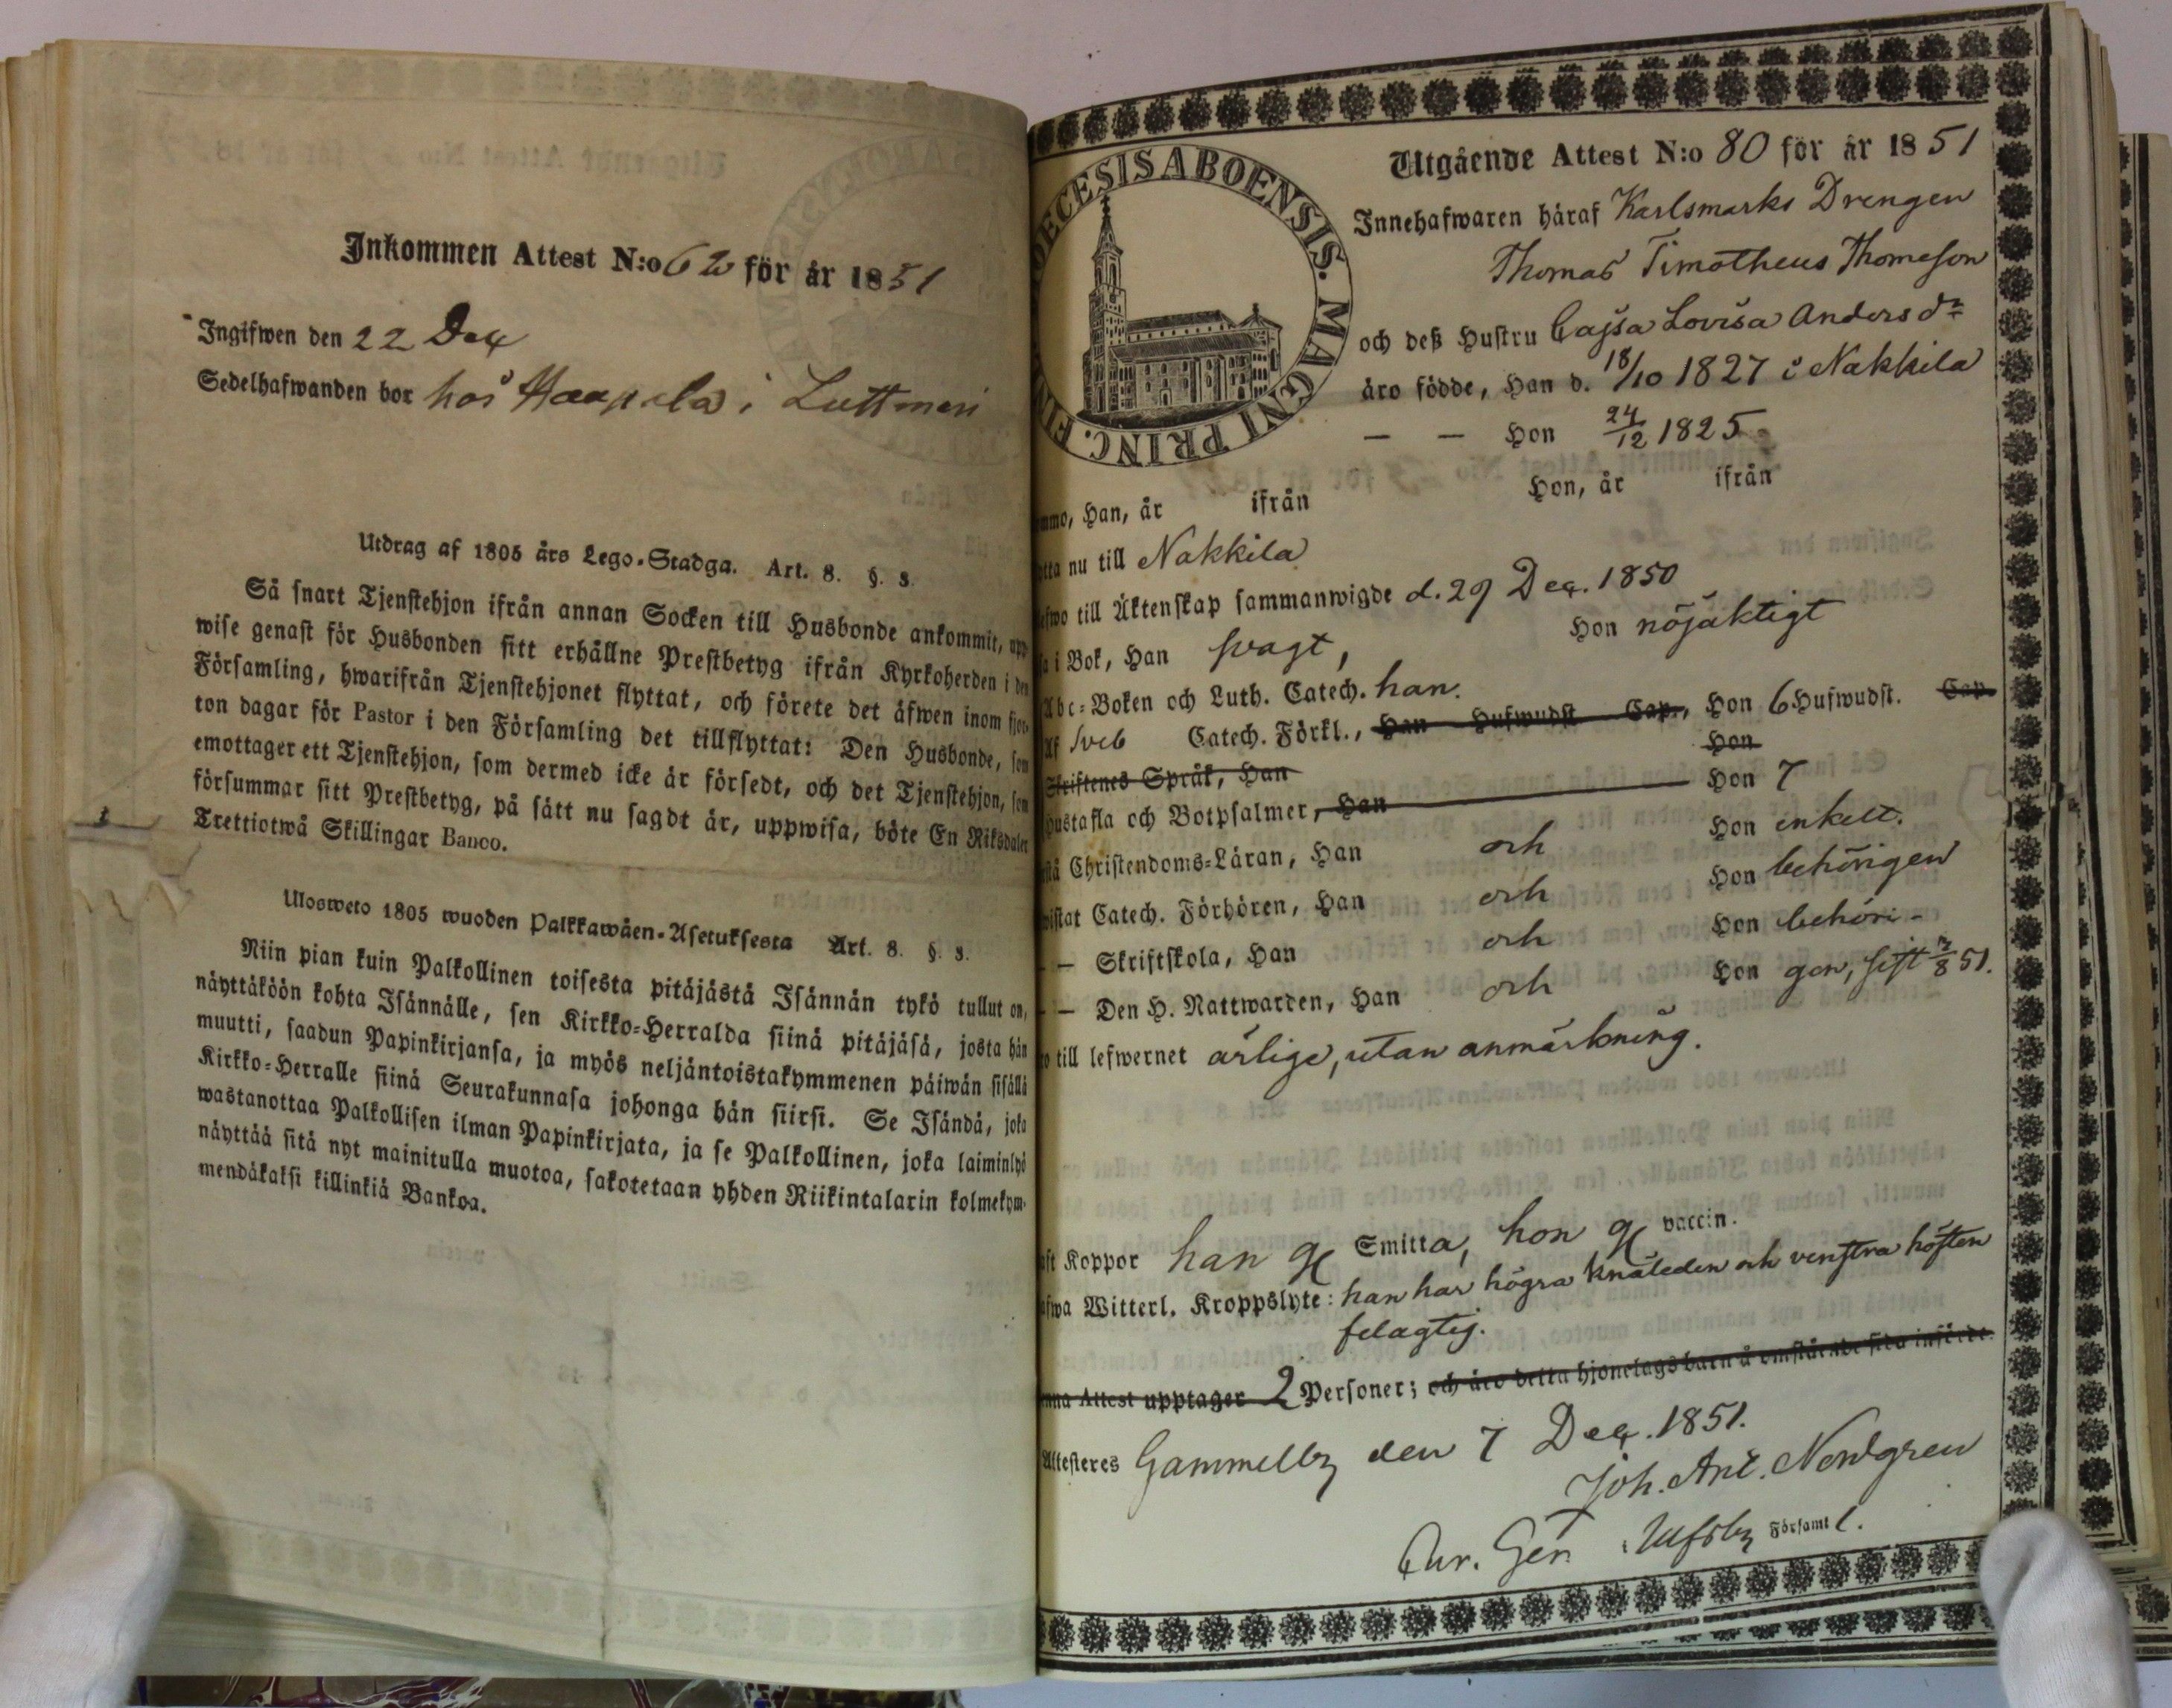 Inkommen Attest N:o 62 för år 1851
Ingifwen den 22 Dec
Sedelhafwanden bor hos Haapala i Luttmeri
Utdrag af 1805 års Lego-Stadga. Art. 8. §. 3.
Så snart Tjenstehjon ifrån annan Socken till Husbonde ankommit, upp-
wise genast för Husbonden sitt erhållne Prestbetyg ifrån Kyrkoherden i den
Församling, hwarifrån Tjenstehjonet flyttat, och förete det äfwen inom fjor-
ton dagar för Pastor i den Församling det tillflyttat: Den Husbonde, som
emottager ett Tjenstehjon, som dermed icke är försedt, och det Tjenstehjon, som
försummar sitt Prestbetyg, på sätt nu sagdt är, uppwisa, böte En Riksdaler
Trettiotwå Skillingar Banco.
Ulosweto 1805 wuoden Palkkawäen-Asetuksesta Art. 8. §. 3.
Niin pian kuin Palkollinen toisesta pitäjästä Isännän tykö tullut on,
näyttäköön kohta Isännälle, sen Kirkko-Herralda siinä pitäjäsä, josta hän
muutti, saadun Papinkirjansa, ja myös neljäntoistakymmenen päiwän sisällä
Kirkko-Herralle siinä Seurakunnasa johonga hän siirsi. Se Isändä, joka
wastanottaa Palkollisen ilman Papinkirjata, ja se Palkollinen, joka laiminlyö
näyttää sitä nyt mainitulla muotoa, sakotetaan yhden Riikintalarin kolmekym-
mendäkaksi killinkiä Bankoa.
OECESIS ABOENSIS. MAGNI PRINC. FIN
Utgående Attest N:o 80 för år 1851
Innehafwaren häraf Karlsmarks Drengen
Thomas Timotheus Thomeson
och deß Hustru Cajsa Lovisa Andersdr
äro födde, Han d. 18/10 1827 i Nakkila
— — Hon 24/12 1825
mmo, Han, år ifrån Hon, år ifrån
tta nu till Nakkila
efwo till Äktenskap sammanwigde d. 29 Dec. 1850
a i Bok, Han svagt, Hon nöjaktigt
Abc-Boken och Luth. Catech. han.
Af Sveb Catech. Förkl., Han Hufwudst Cap., Hon 6 Hufwudst. Cap.
Skriftenes Språk, Han Hon
Hustafla och Botpsalmer, Han Hon 7
stå Christendoms-Läran, Han och Hon enkelt.
wistat Catech. Förhören, Han och Hon behörigen
— Skriftskola, Han och Hon behöri-
— Den H. Nattwarden, Han och Hon gen, sist /8 51.
ro till lefwernet ärlige, utan anmärkning.
aft Koppor han Smitta, hon vaccin.
afwa Witterl. Kroppslyte: han har högra knäleden och venstra höften
felagtig.
nna Attest upptager 2 Personer; och äro detta hjonelags barn å omstående sida införde.
Attesteres Gammelby den 7 Dec. 1851.
Joh. Ant. Nordgren
Cur. Ger. i Ulfsby Församl.